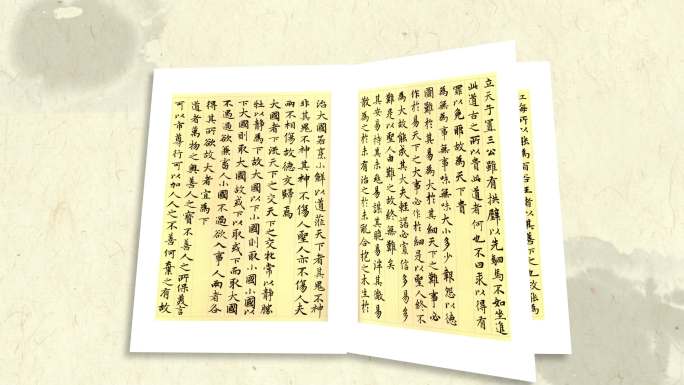 治大國若烹小鮮以道莅天下者其鬼不神
非其鬼不神其神不傷人聖人亦不傷人夫
兩不相傷故德交歸焉
大國者下流天下之交天下之交牝常以靜勝
牡以靜為下故大國以下小國則取小國小國以
下大國則取大國故或下以取或下而取大國
不過欲兼畜人小國不過欲入事人兩者各
得其所欲故大者宜為下
道者萬物之奧善人之寶不善人之所保美言
可以市尊行可以加人人之不善何棄之有故
立天子置三公雖有拱璧以先駟馬不如坐進
此道古之所以貴此道者何也不曰求以得有
罪以免耶故為天下貴
為無為事無事味無味大小多少報怨以德
圖難於其易為大於其細天下之難事必
作於易天下之大事必作於細是以聖人終不
為大故能成其大夫輕諾必寡信多易多
難是以聖人由難之故終無難矣
其安易持其未兆易謀其脆易泮其微易
散為之於未有治之於未亂合抱之木生於
江海所以能為百谷王者以其善下之也故能為